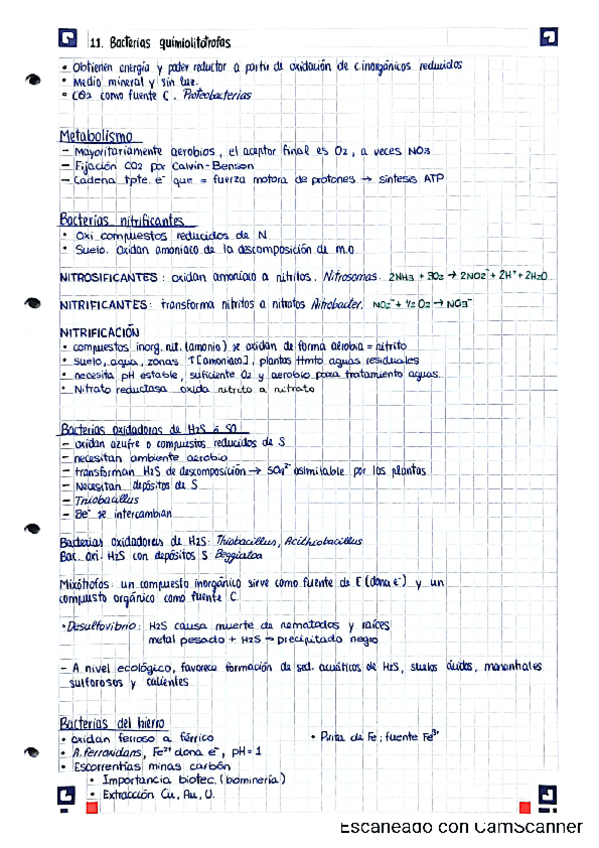 11. Bacterias quimiolitótrofas
• Obtienen energía y poder reductor a partir de oxidación de c.inorgánicos reducidos
• Medio mineral y sin luz.
• CO2 como fuente C. Proteobacterias
Metabolismo
— Mayoritariamente aerobios, el aceptor final es O2, a veces NO3
— Fijación CO2 por Calvin-Benson
— Cadena tpte. e⁻ que = fuerza motora de protones → síntesis ATP
Bacterias nitrificantes
• Oxi compuestos reducidos de N
• Suelo. Oxidan amoniaco de la descomposición de m.o
NITROSIFICANTES: oxidan amoniaco a nitritos. Nitrosomas. 2NH3 + 3O2 → 2NO2⁻ + 2H⁺ + 2H2O
NITRIFICANTES: transforma nitritos a nitratos Nitrobacter. NO2⁻ + ½ O2 → NO3⁻
NITRIFICACIÓN
• compuestos inorg. nit. (amonio) se oxidan de forma aerobia = nitrito
• suelo, agua, zonas ↑[amoniaco], plantas ttmto aguas residuales
• necesita pH estable, suficiente O2 y aerobio para tratamiento aguas.
• Nitrato reductasa oxida nitrito a nitrato
Bacterias oxidadoras de H2S ó SO
— oxidan azufre o compuestos reducidos de S
— necesitan ambiente aerobio
— transforman H2S de descomposición → SO4²⁻ asimilable por las plantas
— Necesitan depósitos de S
— Thiobacillus
— 8e⁻ se intercambian
Bacterias oxidadoras de H2S: Thiobacillus, Acidithiobacillus
Bac. oxi. H2S con depósitos S: Beggiatoa
Mixótrofos: un compuesto inorgánico sirve como fuente de E (dona e⁻) y un
compuesto orgánico como fuente C.
• Desulfovibrio: H2S causa muerte de nematodos y raíces
metal pesado + H2S → precipitado negro
— A nivel ecológico, favorece formación de sed. acuáticos de H2S, suelos ácidos, manantiales
sulforosos y calientes
Bacterias del hierro
• oxidan ferroso a férrico • Pirita de Fe; fuente Fe³⁺
• A. ferroxidans, Fe²⁺ dona e⁻, pH=1
• Escorrentías minas carbón
• Importancia biotec. (biominería)
• Extracción Cu, Au, U.
Escaneado con CamScanner